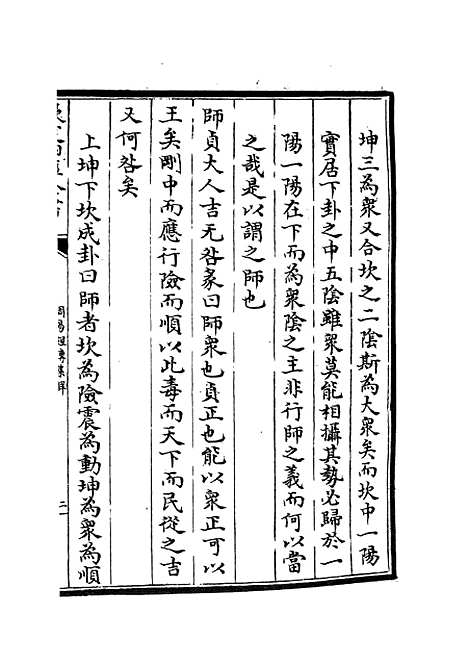 坤三為衆又合坎之二陰斯為大衆矣而坎中一陽
實居下卦之中五陰雖衆莫能相攝其勢必歸於一
陽一陽在下而為衆陰之主非行師之義而何以當
之哉是以謂之師也
師貞大人吉无咎彖曰師衆也貞正也能以衆正可以
王矣剛中而應行險而順以此毒而天下而民從之吉
又何咎矣
上坤下坎成卦曰師者坎為險震為動坤為衆為順